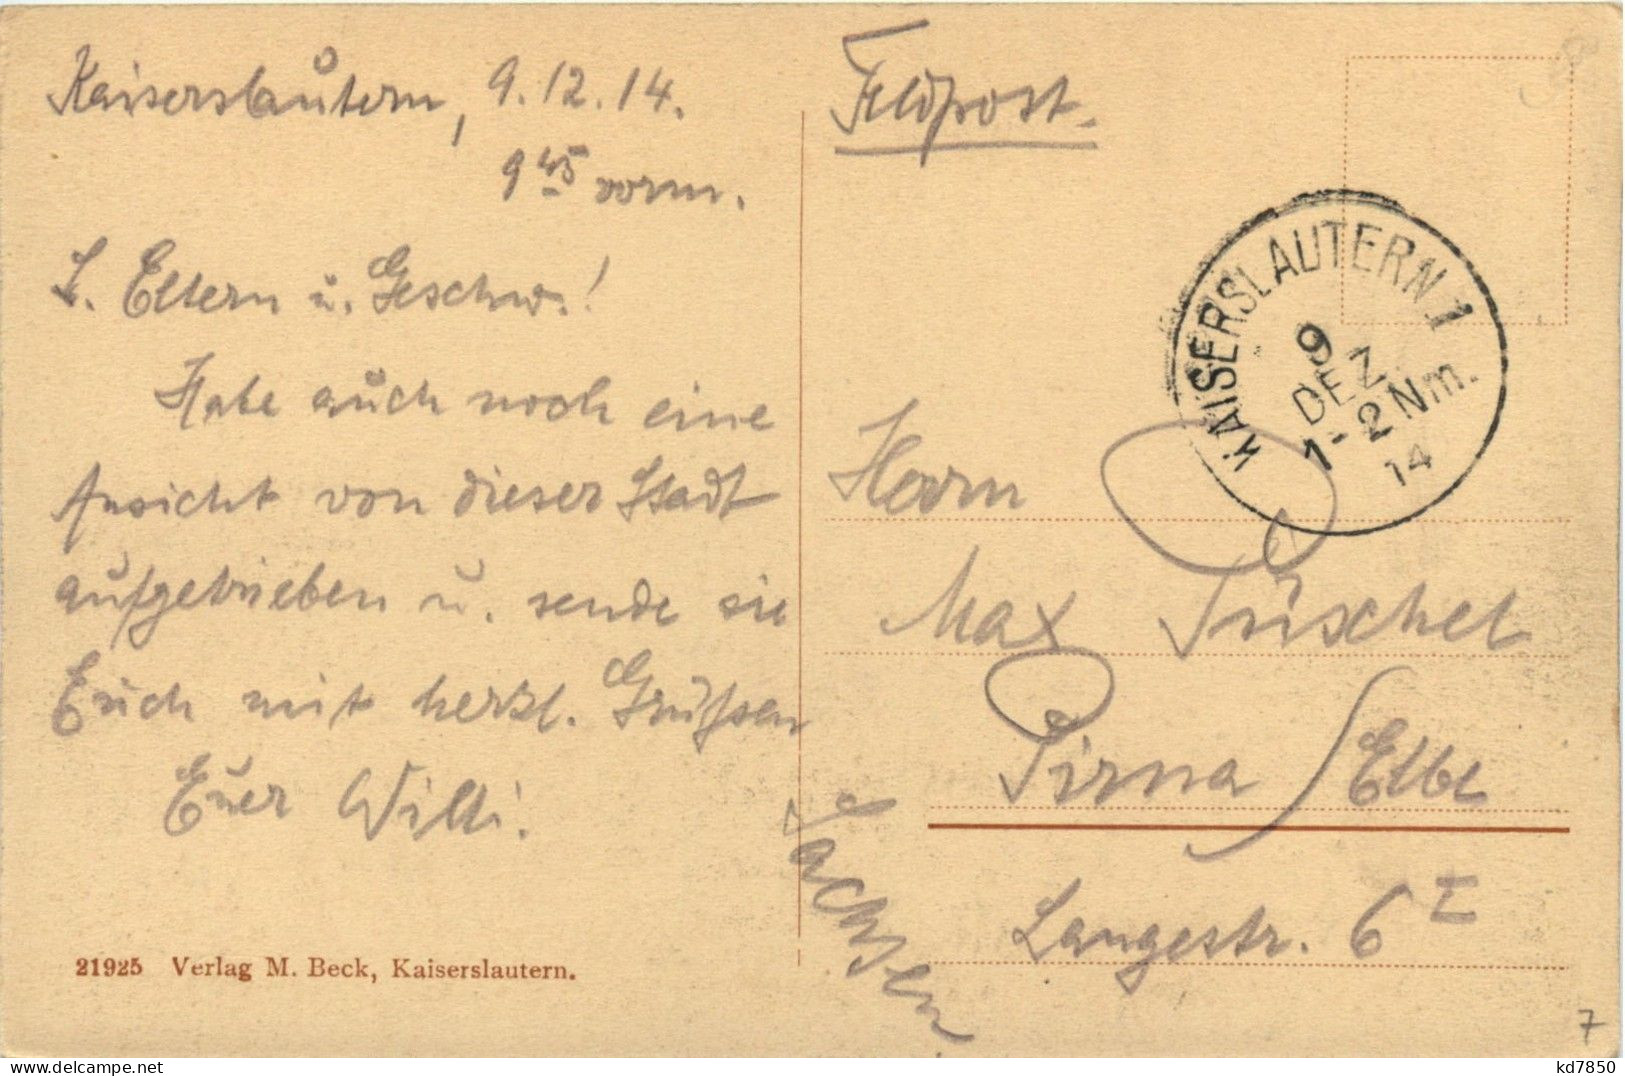 Kaiserslautern, 9.12.14.
9 45 vorm.
L. Eltern u. Geschw.!
Habe auch noch eine
Ansicht von dieser Stadt
aufgetrieben u. sende sie
Euch mit herzl. Grüßen
Euer Willi.
21925 Verlag M. Beck, Kaiserslautern.
Feldpost.
KAISERSLAUTERN 1
9
DEZ.
1-2 Nm.
14
Herrn
Max Püschel
Pirna / Elbe
Langestr. 6 I
Sachsen
7
www.delcampe.net
kd7850